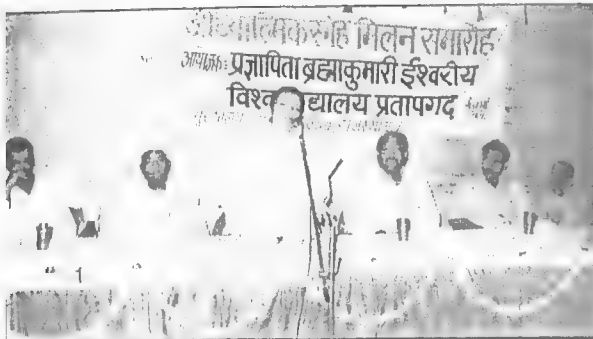 आध्यात्मिक स्नेह मिलन समारोह
आयोजक: प्रजापिता ब्रह्माकुमारी ईश्वरीय
विश्व द्यालय प्रतापगढ़